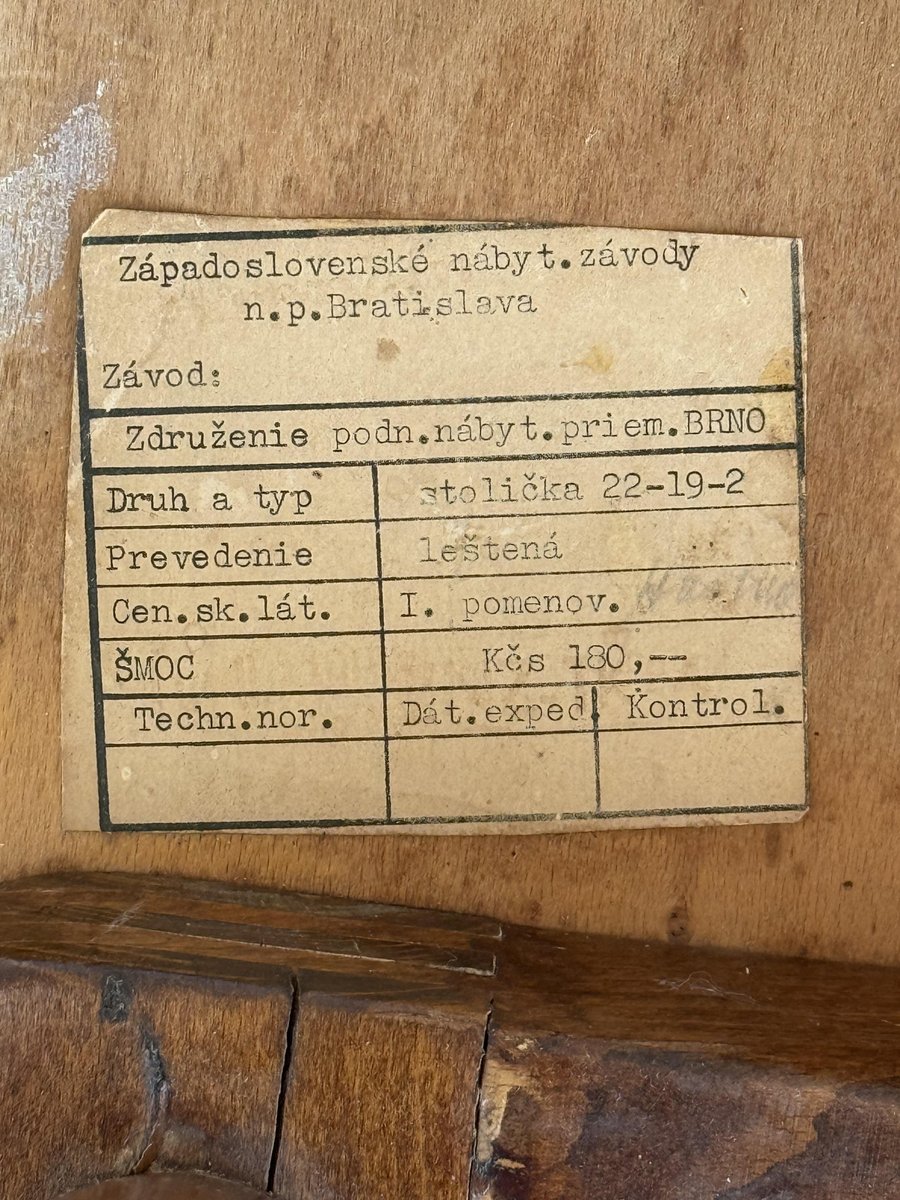 Západoslovenské nábyt.závody
n.p.Bratislava
Závod:
Združenie podn.nábyt.priem.BRNO
Druh a typ stolička 22-19-2
Prevedenie leštená
Cen.sk.lát. I. pomenov.
ŠMOC Kčs 180,--
Techn.nor. Dát.exped. Kontrol.